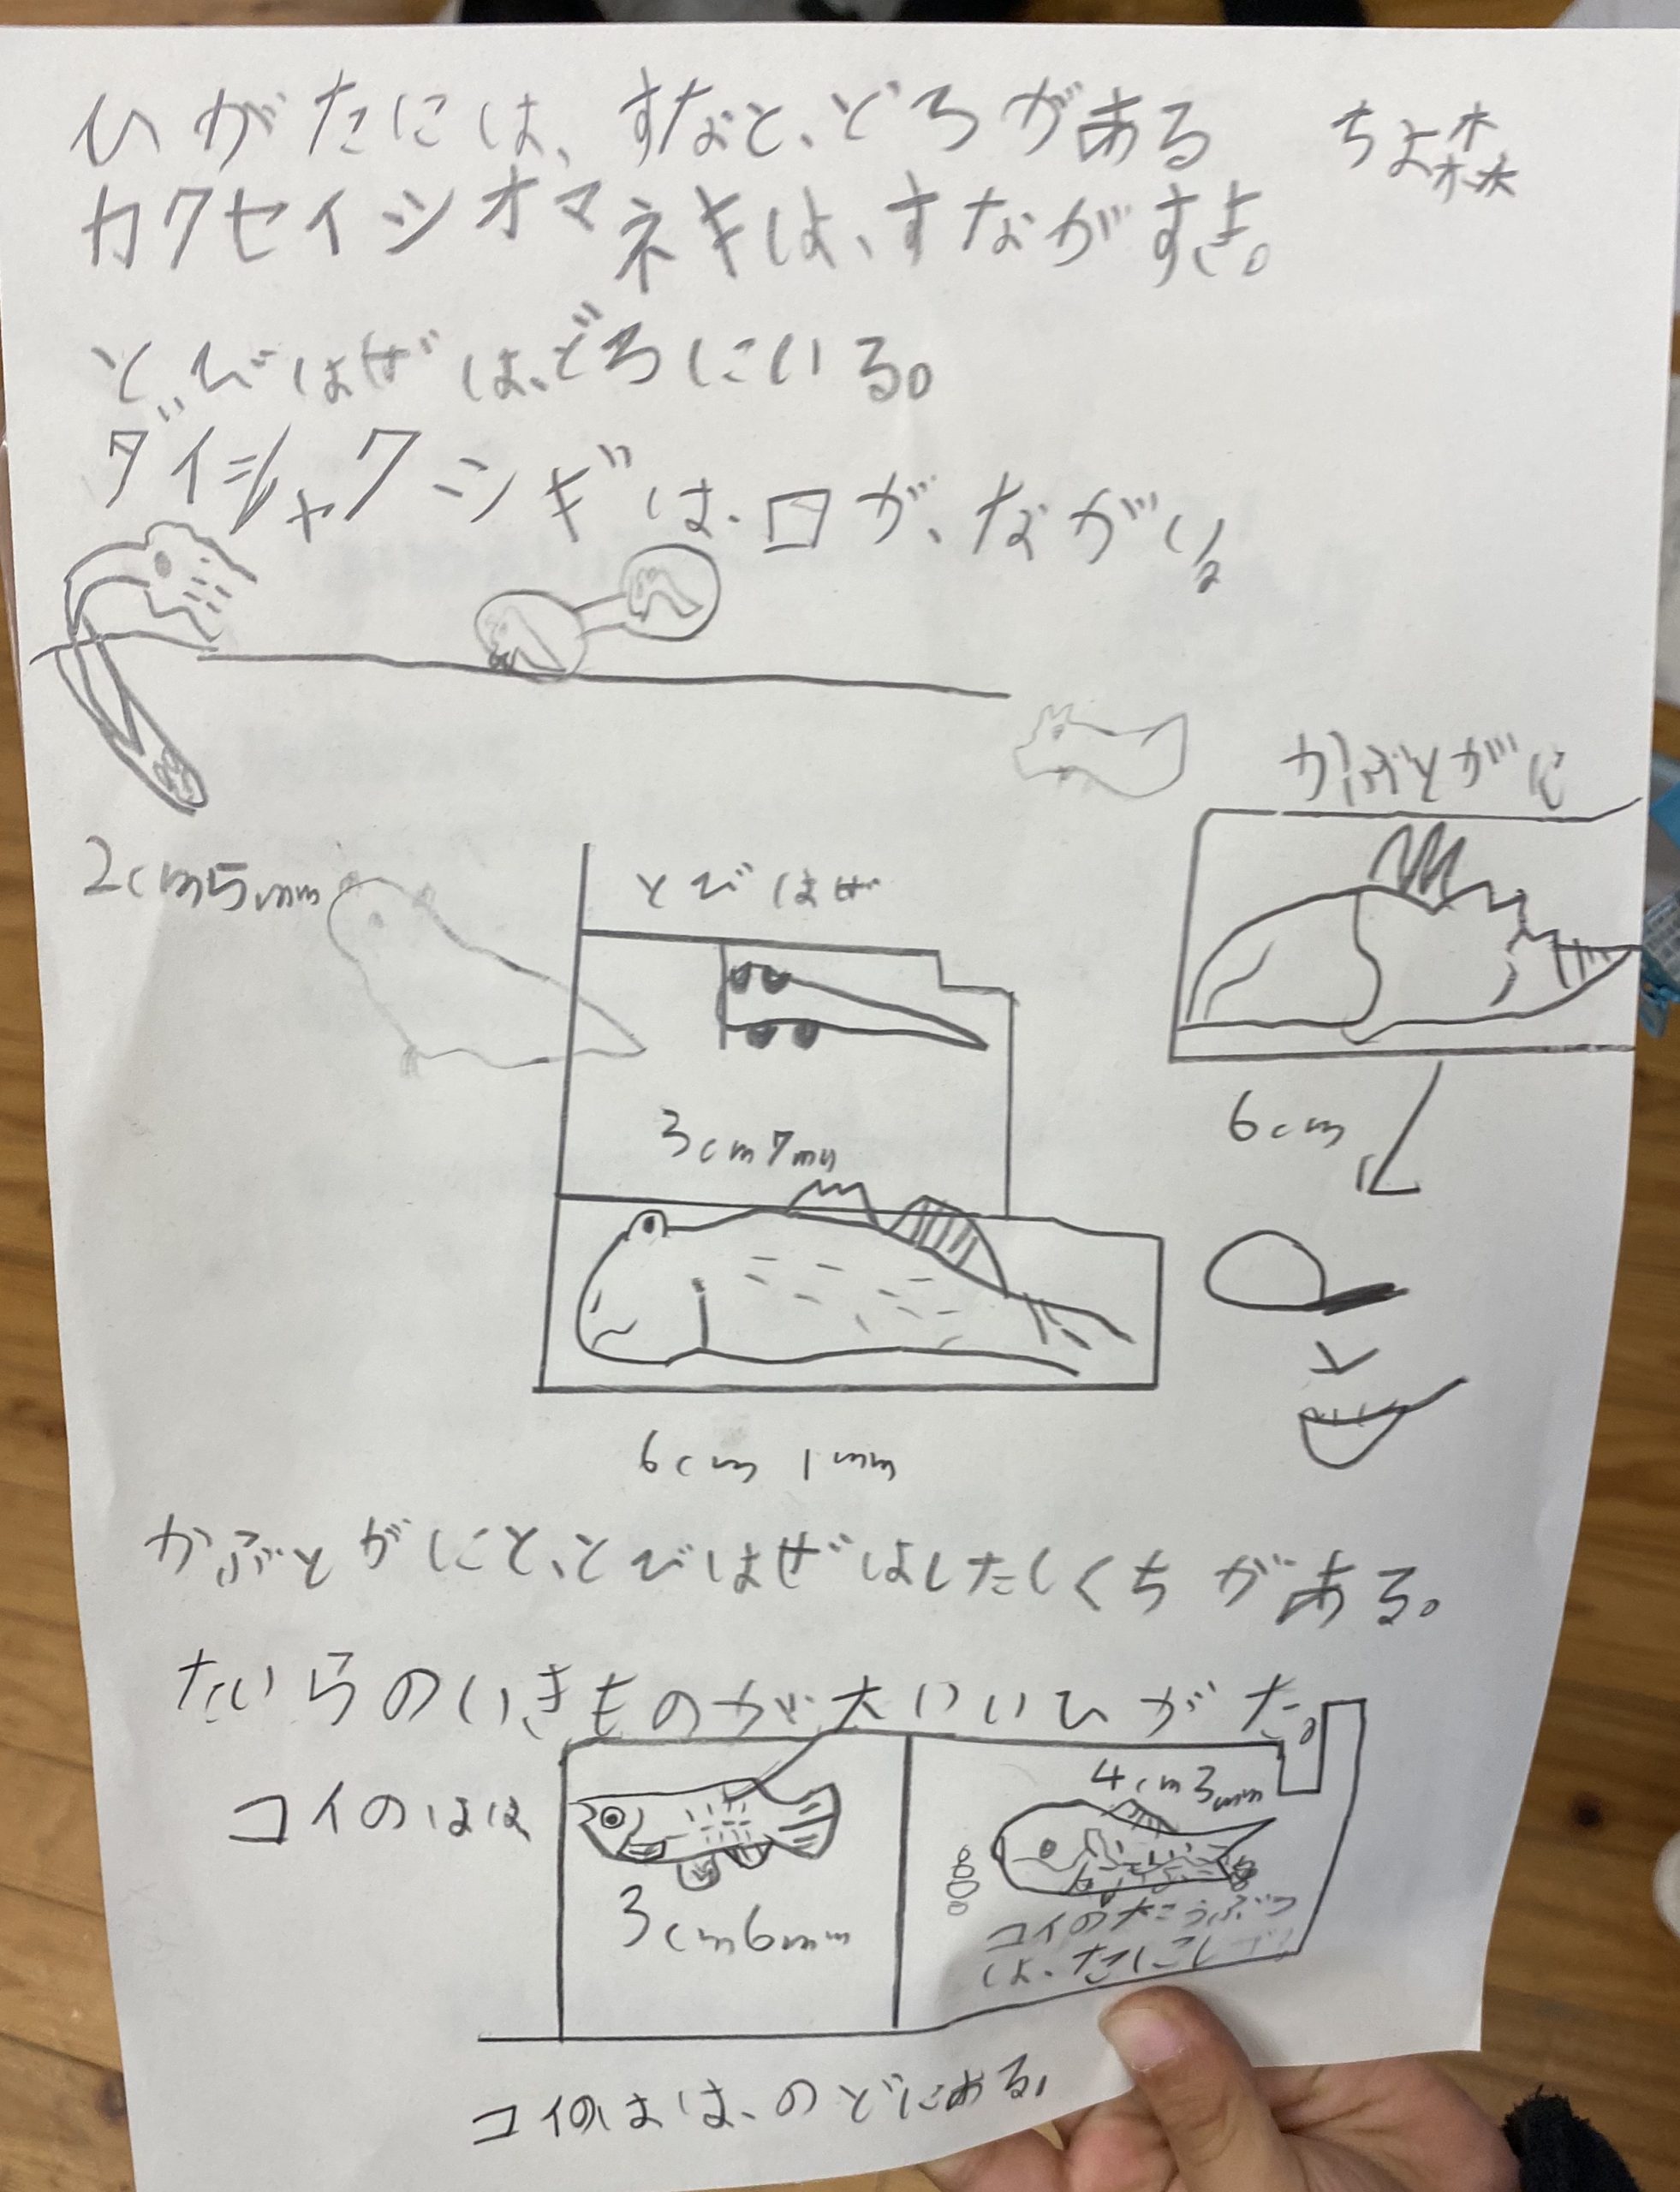 ひがたには、すなと、どろがある
ちよ森
カクセイシオマネキは、すながすき。
とびはぜは、どろにいる。
ダイシャクシギは、口が、ながい。
かぶとがに
2cm5mm
とびはぜ
3cm7mm
6cm
6cm1mm
かぶとがにと、とびはぜはしたしくちがある。
たいらのいきものが大いいひがた。
コイのはは
4cm3mm
3cm6mm
コイの大こうぶつ
は、たにし
コイのはは、のどにある。